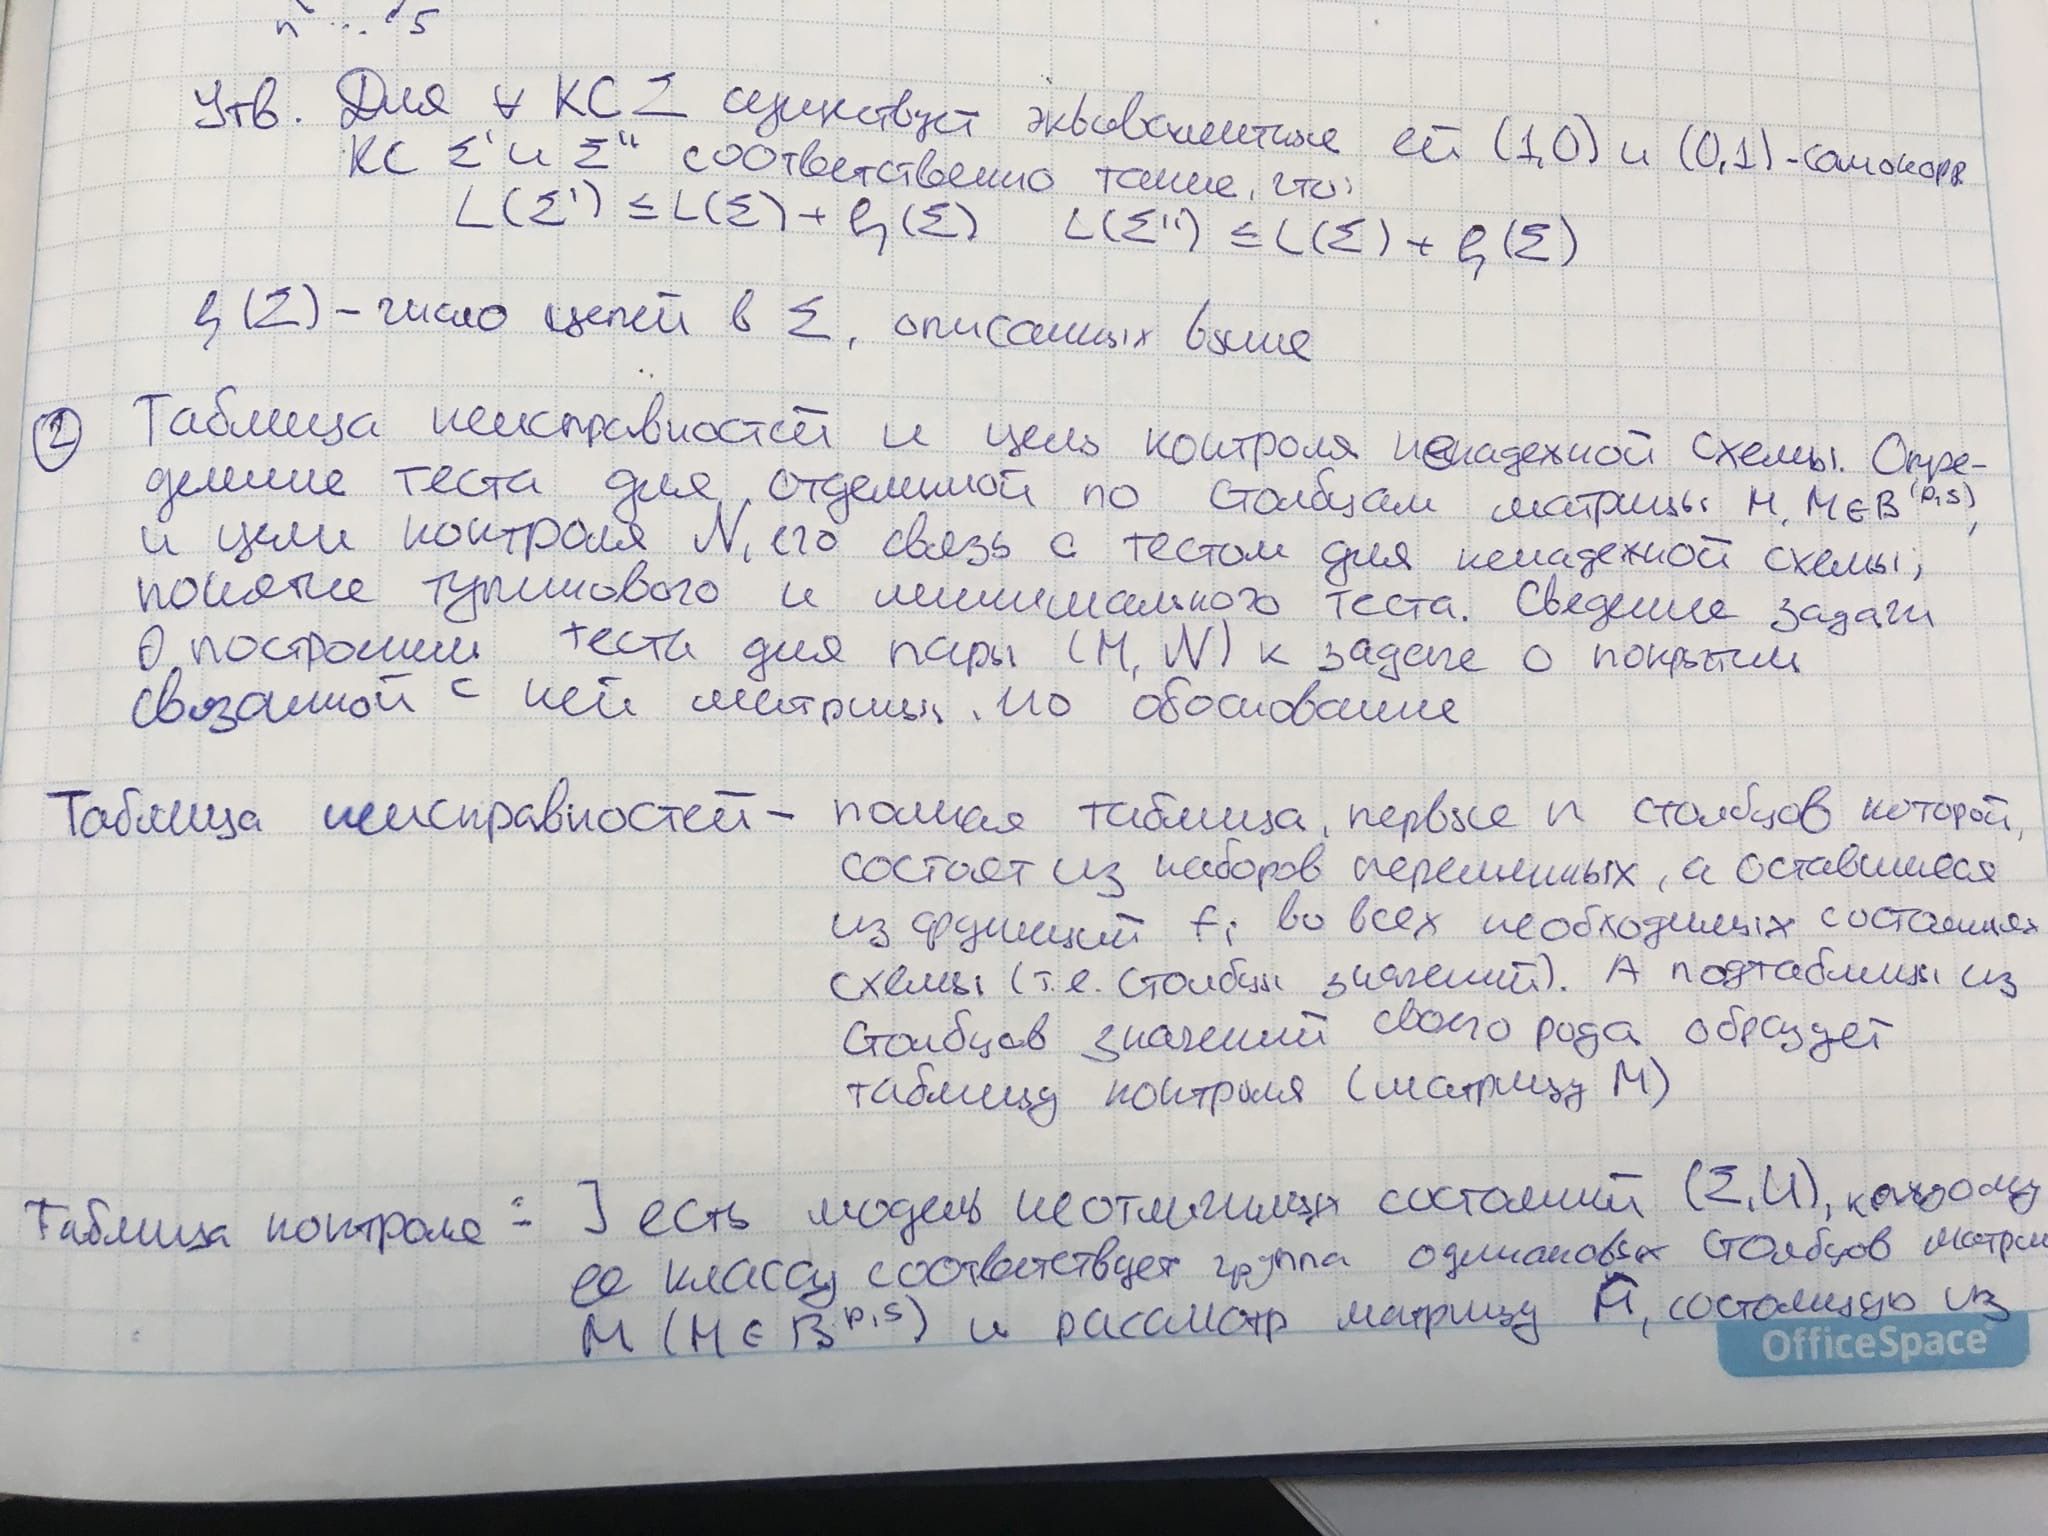 n ... 5
Утв. Для ∀ КС Σ существует эквивалентные ей (1,0) и (0,1)-самокорр
КС Σ' и Σ'' соответственно такие, что:
L(Σ') ≤ L(Σ) + ξ(Σ) L(Σ'') ≤ L(Σ) + ξ(Σ)
ξ(Σ) - число цепей в Σ, описанных выше
② Таблица неисправностей и цель контроля ненадежной схемы. Опре-
деление теста для отделимой по столбцам матрицы M, M∈B^(p,s),
и цели контроля N, его связь с тестом для ненадежной схемы;
понятие тупикового и минимального теста. Сведение задачи
о построении теста для пары (M, N) к задаче о покрытии
связанной с ней матрицы, его обоснование
Таблица неисправностей - полная таблица, первые n столбцов которой,
состоят из наборов переменных, а оставшиеся
из функций fi во всех необходимых состояниях
схемы (т.е. столбцы значений). А подтаблицы из
столбцов значений своего рода образует
таблицу контроля (матрицу M)
Таблица контроля := ] есть модель неотличимых состояний (Σ,И), каждому
ее классу соответствует группа одинаковых столбцов матри
M (M∈B^p,s) и рассмотр матрицу M̂, состоящую из
OfficeSpace